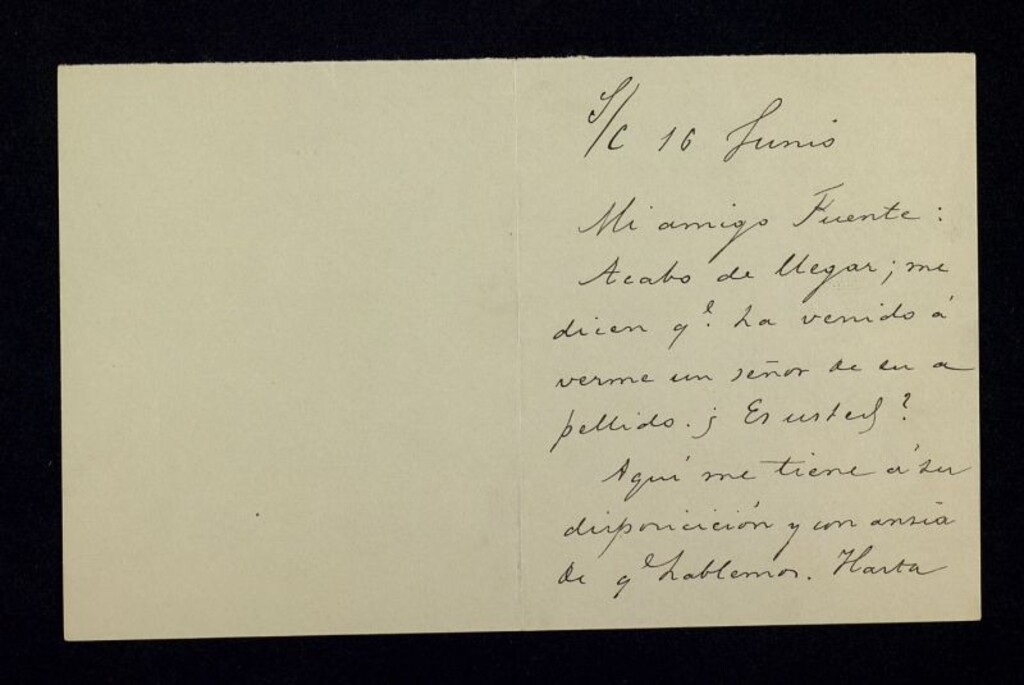 S/C 16 Junio
Mi amigo Fuente:
Acabo de llegar; me
dicen qe. ha venido á
verme un señor de su a
pellido. ¿Es usted?
Aquí me tiene á su
disposicición y con ansia
de qe hablemos. Hasta